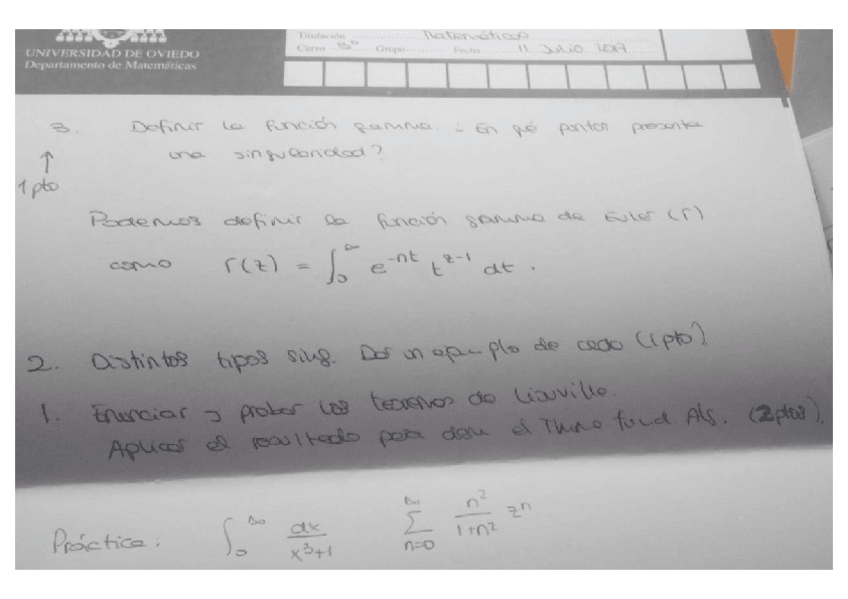 UNIVERSIDAD DE OVIEDO
Departamento de Matemáticas
Titulación Matemáticas
Curso Grupo Fecha 11 Julio 2017
3. Definir la función gamma. ¿En qé puntos presenta
una singularidad?
1 pto
Podemos definir la función gamma de Euler (Γ)
como Γ(z) = ∫₀^∞ e^{-nt} t^{z-1} dt.
2. Distintos tipos sing. Dar un ejemplo de cada (1pto).
1. Enunciar y probar los teoremas de Liouville.
Aplicar el resultado para dem el Thmo fund Alg. (2ptos).
Práctica: ∫₀^∞ dx/(x³+1) ∑_{n=0}^∞ n²/(1+n²) zⁿ